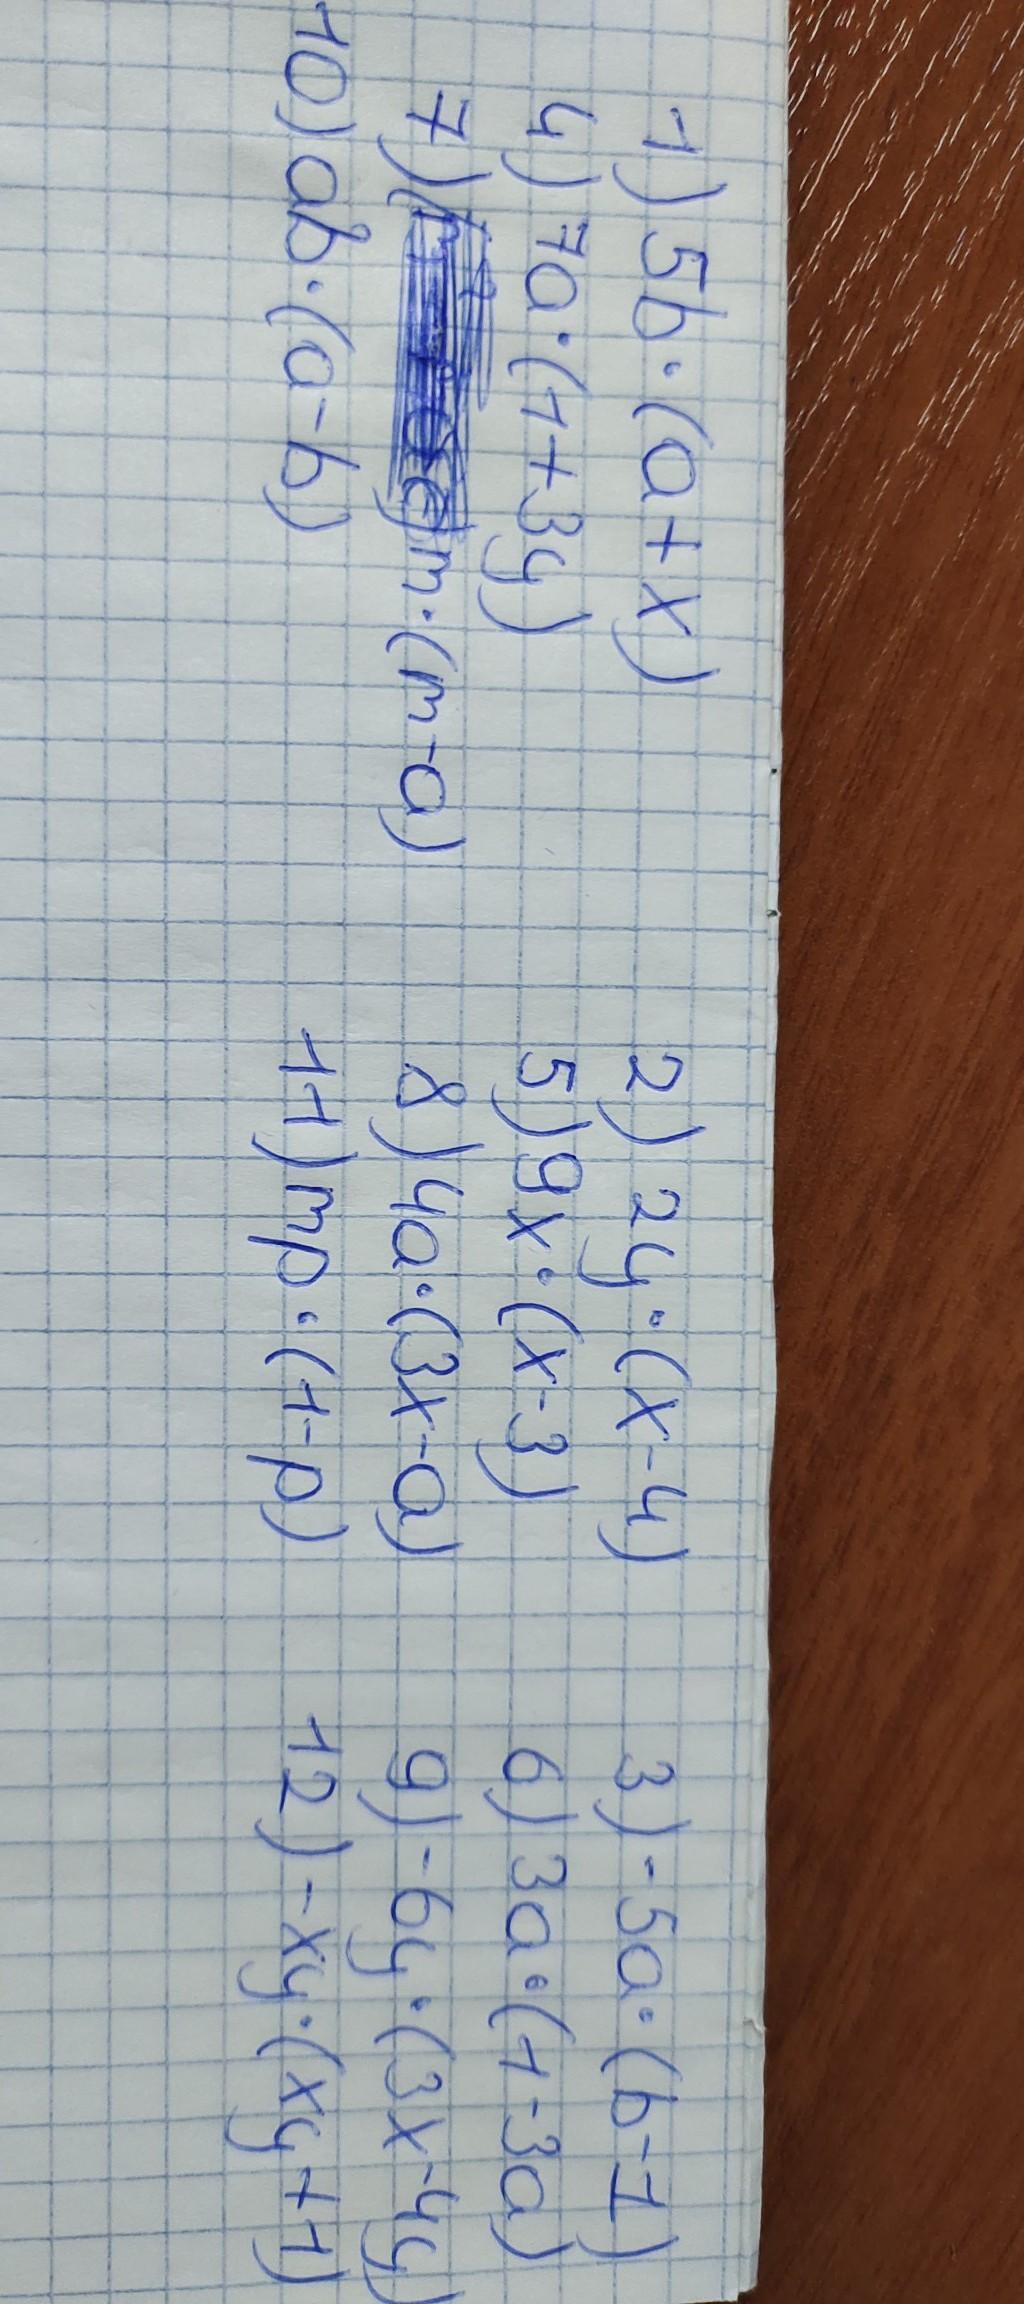 1) 5b·(a+x) 2) 2y·(x-4) 3) -5a·(b-1)
4) 7a·(1+3y) 5) 9x·(x-3) 6) 3a·(1-3a)
7) m·(m-a) 8) 4a·(3x-a) 9) -6y·(3x-4y)
10) ab·(a-b) 11) mp·(1-p) 12) -xy·(xy+1)